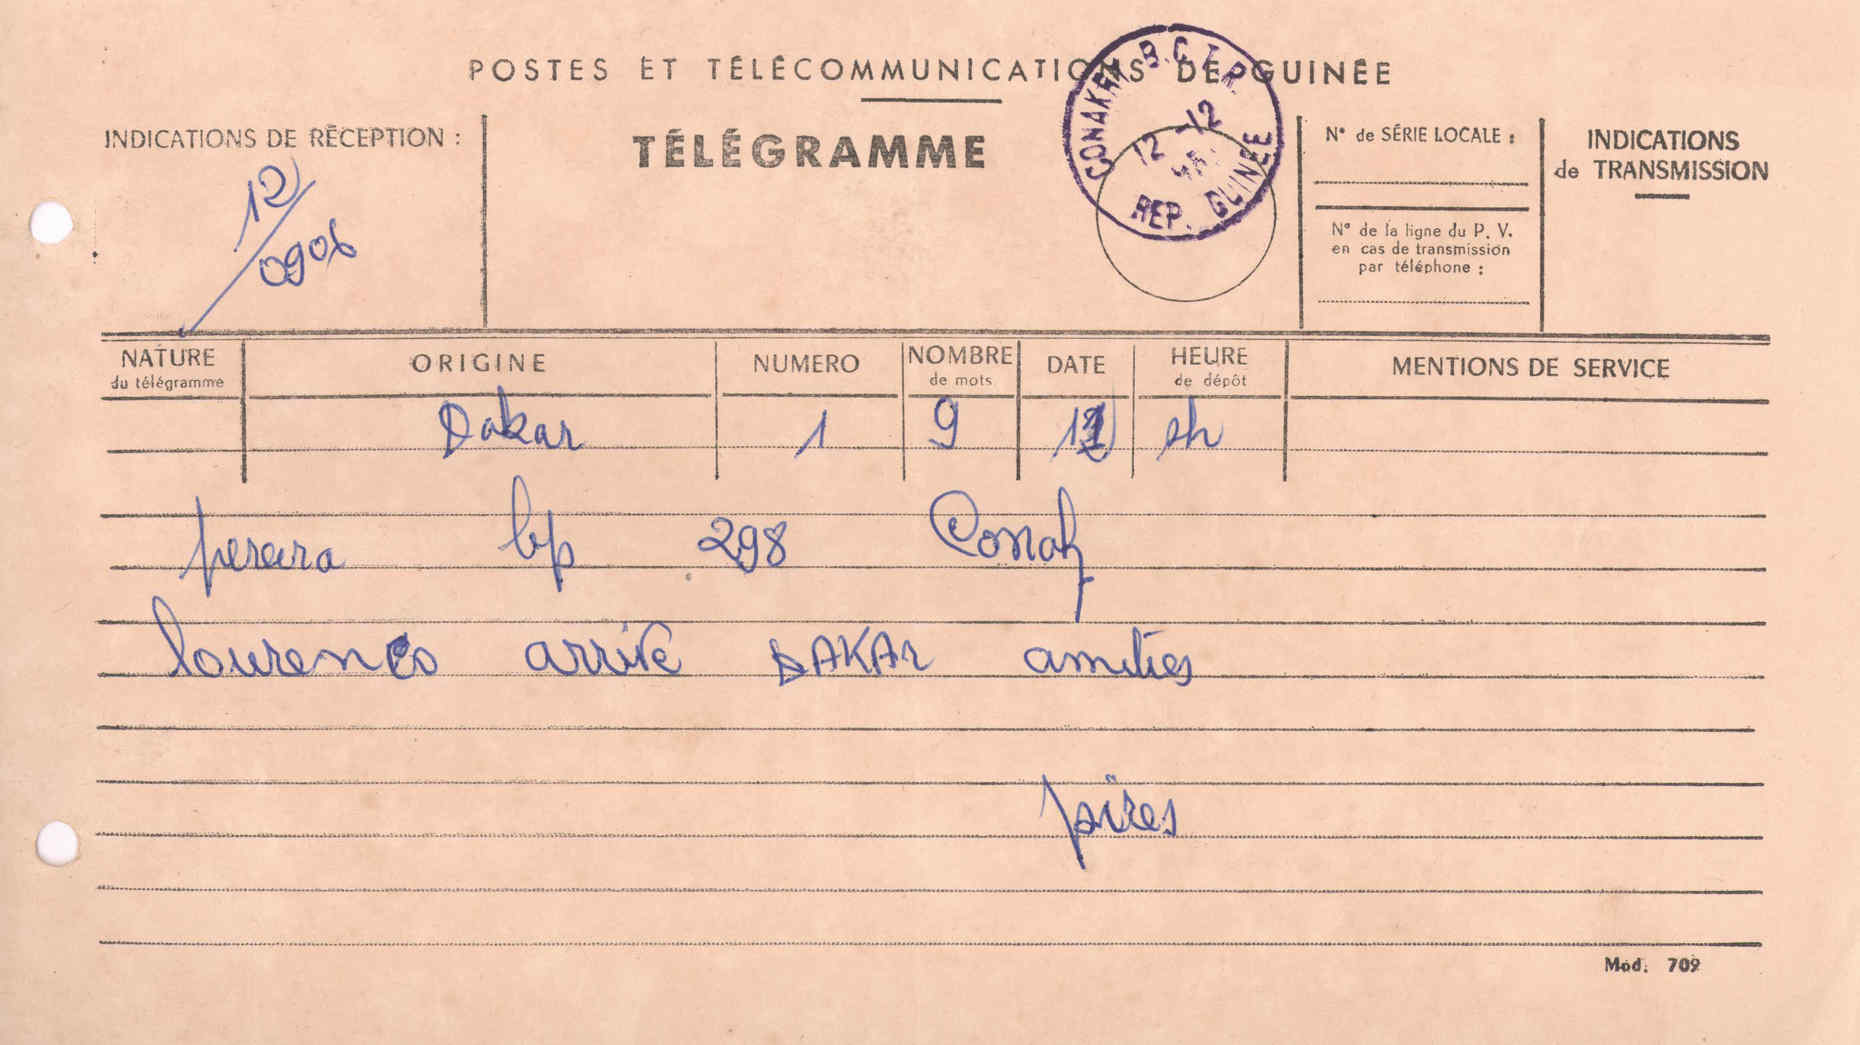 POSTES ET TÉLÉCOMMUNICATIONS DE GUINÉE
CONAKRY B.C.T.R.
12 -12
REP. GUINÉE
INDICATIONS DE RÉCEPTION :
12/0906
TÉLÉGRAMME
N° de SÉRIE LOCALE :
N° de la ligne du P. V.
en cas de transmission
par téléphone :
INDICATIONS
de TRANSMISSION
NATURE
du télégramme
ORIGINE
NUMERO
NOMBRE
de mots
DATE
HEURE
de dépôt
MENTIONS DE SERVICE
Dakar 1 9
pereira bp 298 Conak
lourenco arrivé DAKAR amities
pires
Mod. 709